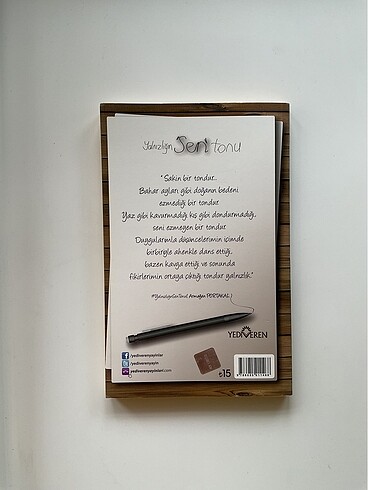 Yalnızlığın Sen tonu
"Sakin bir tondur..
Bahar ayları gibi doğanın bedeni
ezmediği bir tondur.
Yaz gibi kavurmadığı kış gibi dondurmadığı,
seni ezmeyen bir tondur.
Duygularımla düşüncelerimin içimde
birbiriyle ahenkle dans ettiği,
bazen kavga ettiği ve sonunda
fikirlerimin ortaya çıktığı tondur yalnızlık."
#YalnızlığınSenTonu( Armağan PORTAKAL )
YEDİVEREN
/yediverenyayinlar
/yediverenyayin
yediverenyayinlari.com
₺15